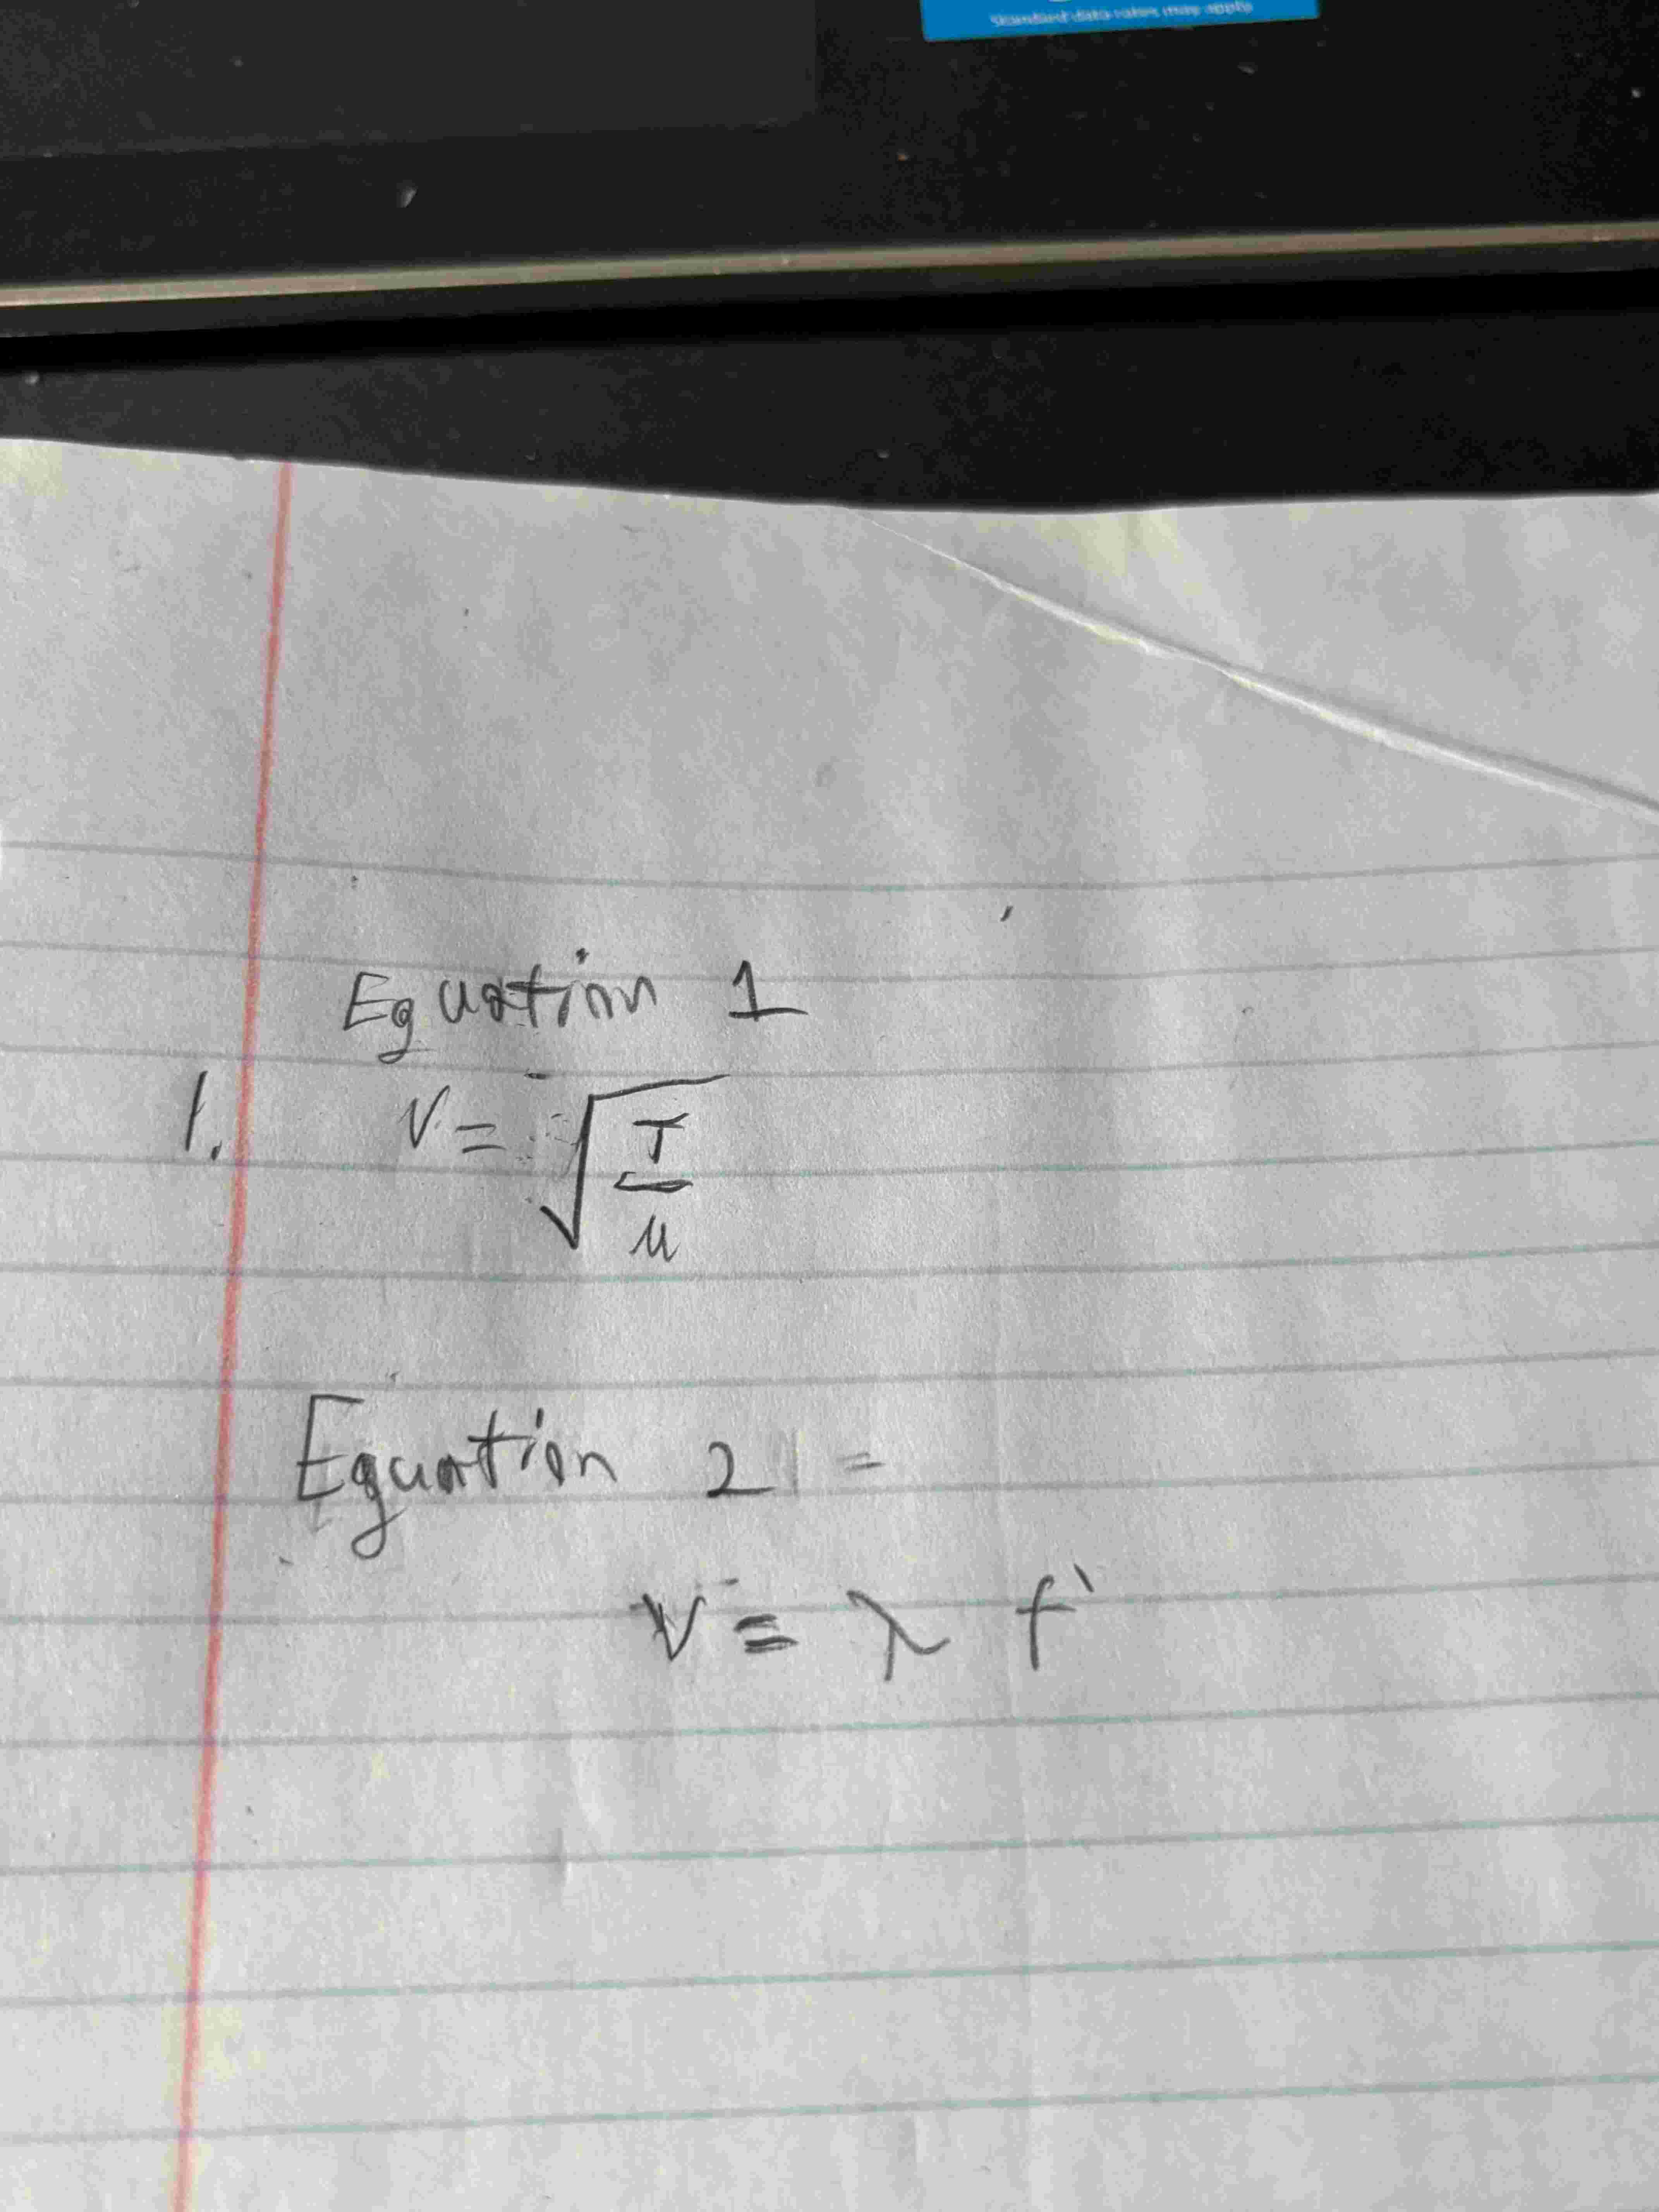 Standard data rates may apply
Equation 1
1. v = √(T/μ)
Equation 2 =
v = λ f